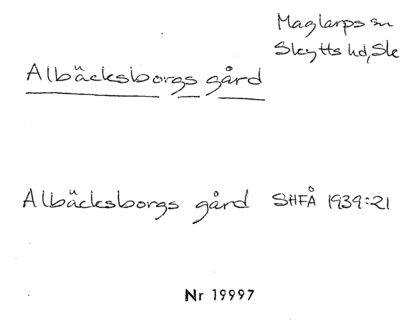 Maglarps sn
Skytts hd, Sk
Albäcksborgs gård
Albäcksborgs gård SHFÅ 1939:21
Nr 19997